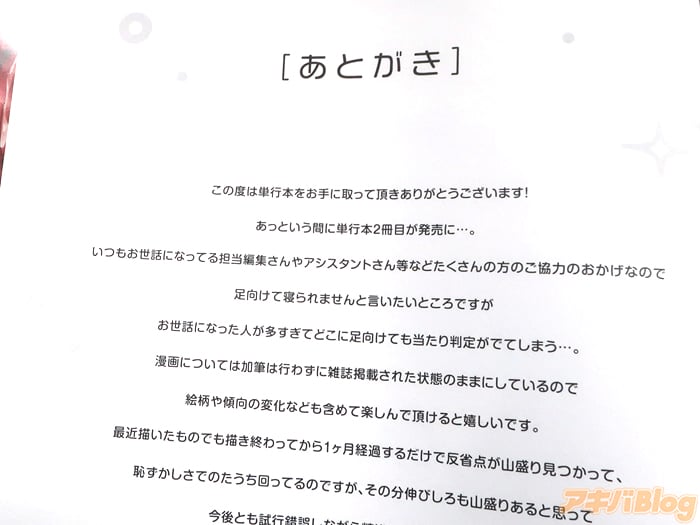 [あとがき]
この度は単行本をお手に取って頂きありがとうございます!
あっという間に単行本2冊目が発売に…。
いつもお世話になってる担当編集さんやアシスタントさん等などたくさんの方のご協力のおかげなので
足向けて寝られませんと言いたいところですが
お世話になった人が多すぎてどこに足向けても当たり判定がでてしまう…。
漫画については加筆は行わずに雑誌掲載された状態のままにしているので
絵柄や傾向の変化なども含めて楽しんで頂けると嬉しいです。
最近描いたものでも描き終わってから1ヶ月経過するだけで反省点が山盛り見つかって、
恥ずかしさでのたうち回ってるのですが、その分伸びしろも山盛りあると思って
今後とも試行錯誤しながら
アキバBlog